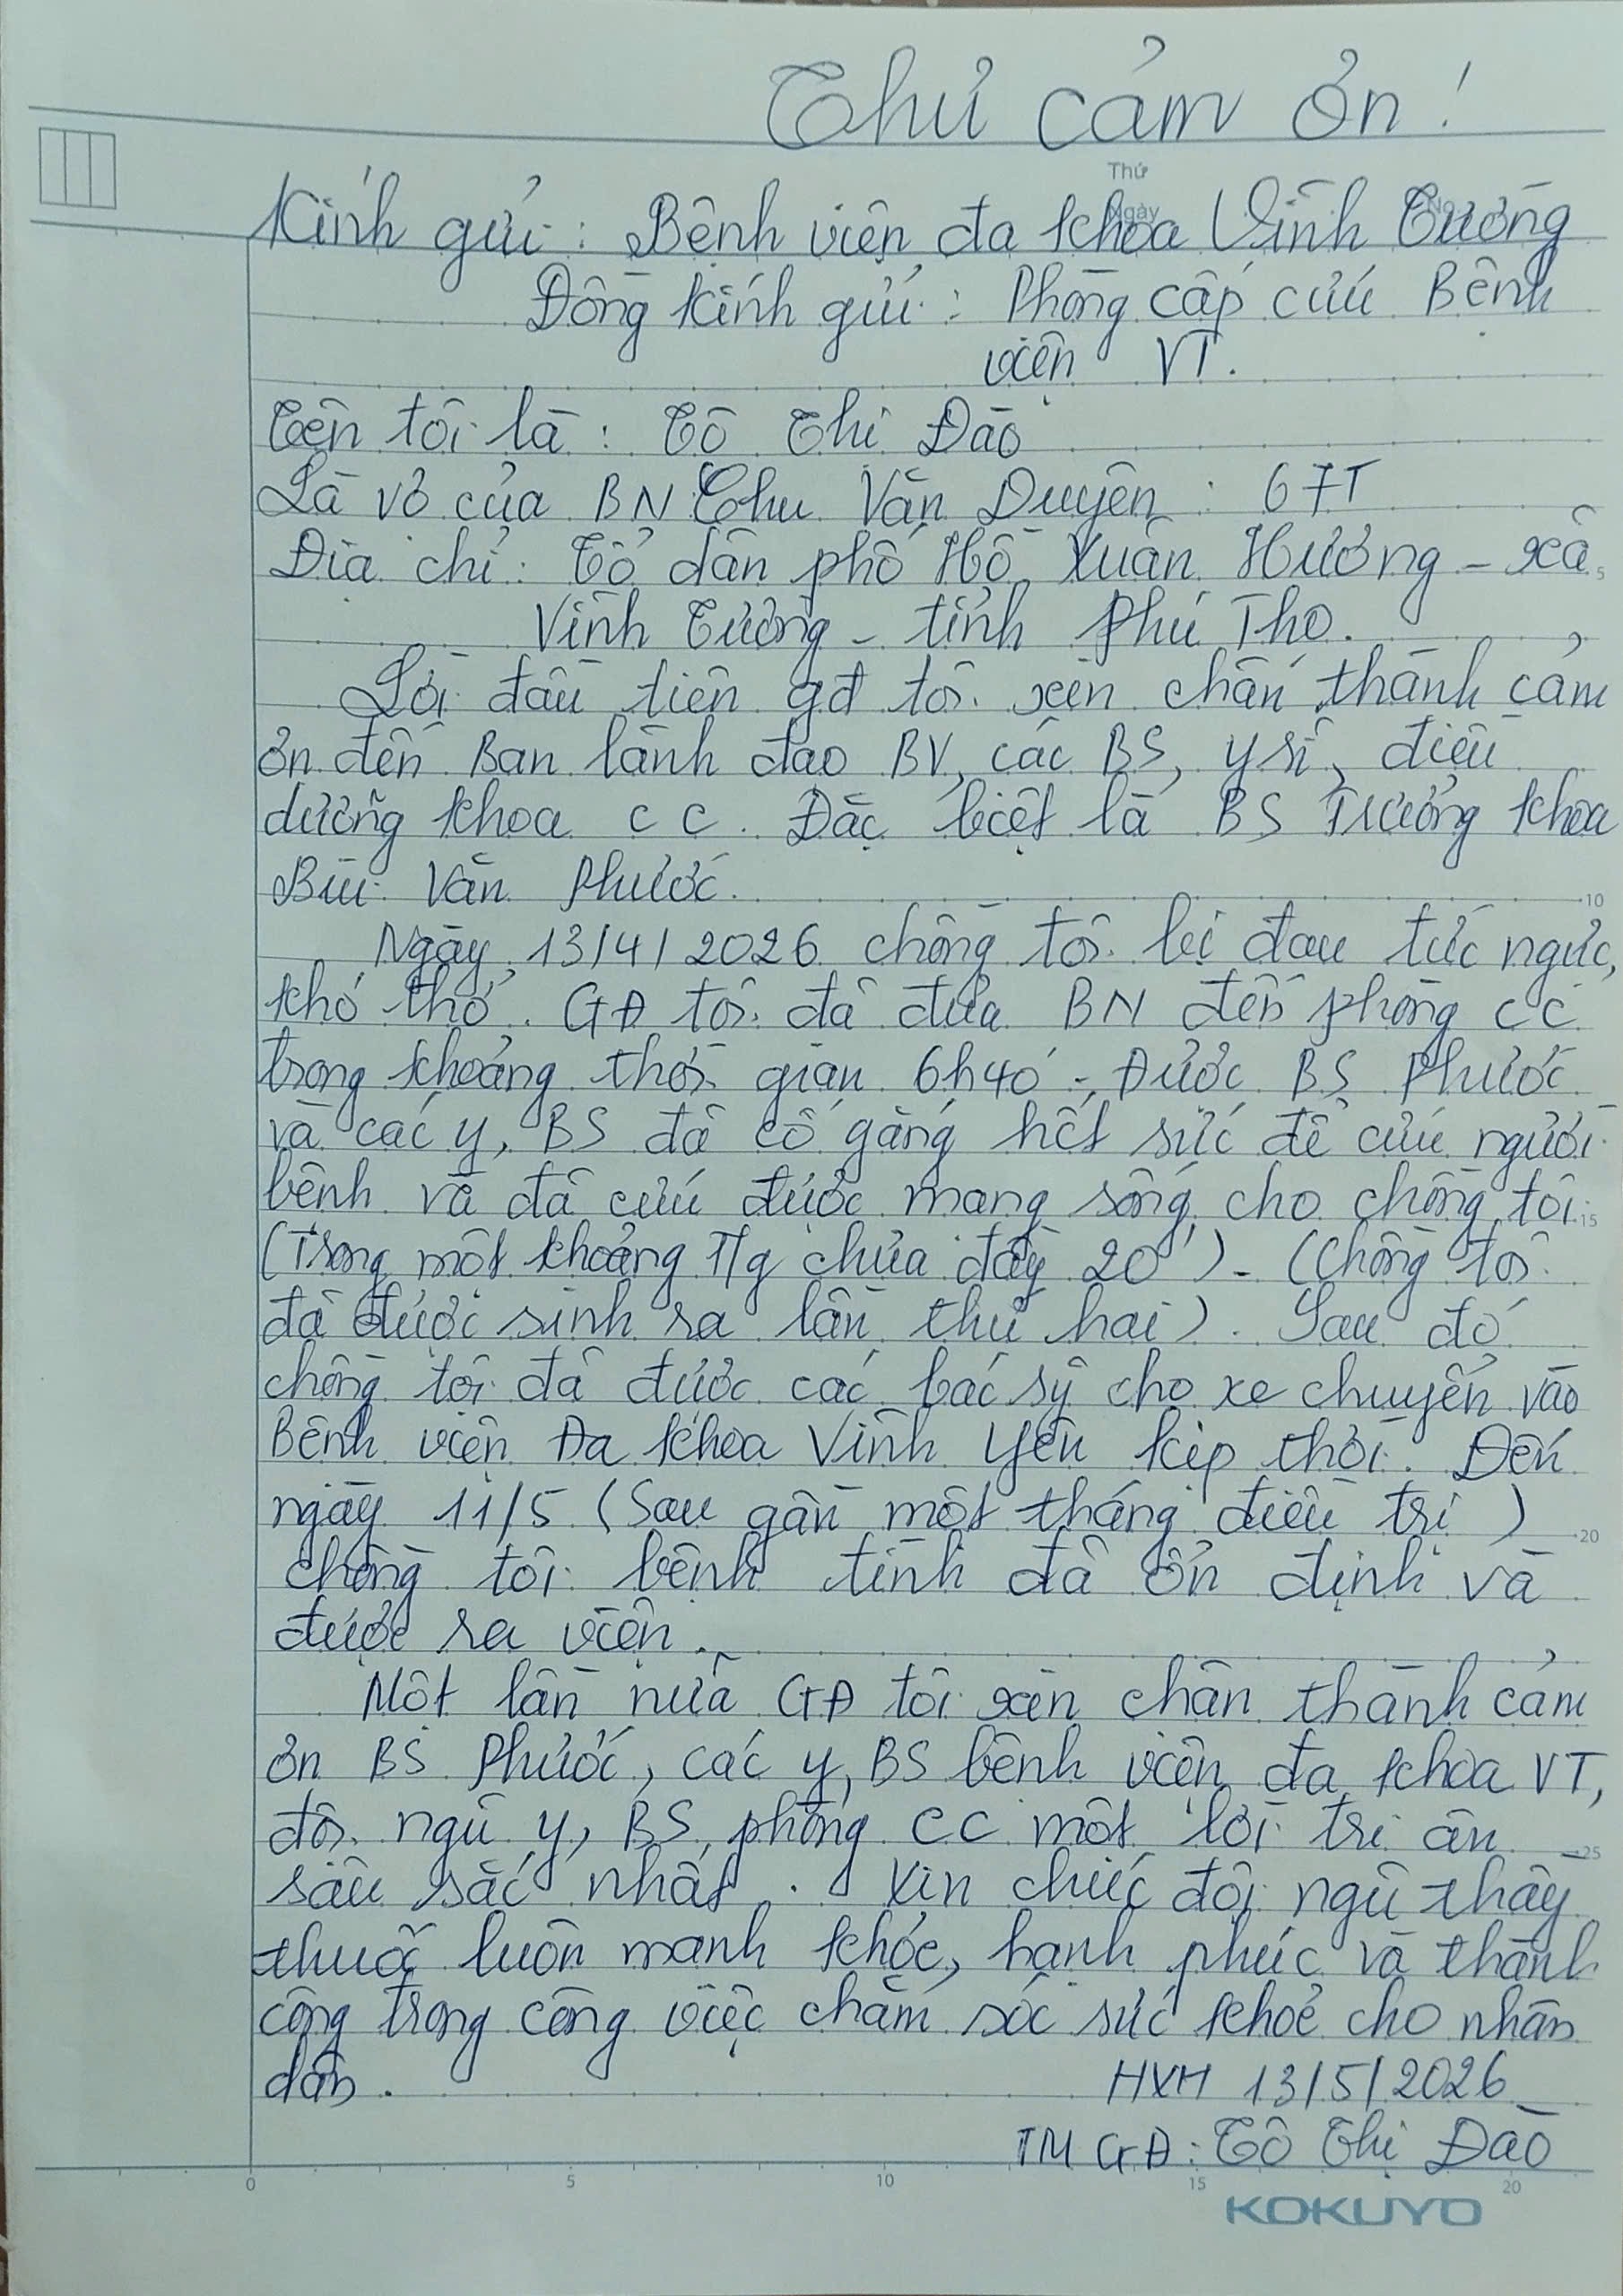 Thư cảm ơn!
Thứ
Ngày
No.
Kính gửi: Bệnh viện đa khoa Vĩnh Tường
Đồng kính gửi: Phòng cấp cứu Bệnh
viện VT.
Tên tôi là: Tô Thị Đào
Là vợ của BN Chu Văn Duyên: 67T
Địa chỉ: Tổ dân phố Hồ Xuân Hương - xã
5
Vĩnh Tường - tỉnh Phú Thọ.
Lời đầu tiên gđ tôi xin chân thành cảm
ơn đến Ban lãnh đạo BV, các BS, y sĩ, điều
dưỡng khoa CC. Đặc biệt là BS Trưởng khoa
Bùi Văn Phước.
10
Ngày 13/4/2026 chồng tôi bị đau tức ngực,
khó thở. GĐ tôi đã đưa BN đến phòng CC
trong khoảng thời gian 6h40' - Được BS Phước
và các y, BS đã cố gắng hết sức để cứu người
bệnh và đã cứu được mạng sống cho chồng tôi
15
(Trong một khoảng T/g chưa đầy 20') - (Chồng tôi
đã được sinh ra lần thứ hai). Sau đó
chồng tôi đã được các bác sỹ cho xe chuyển vào
Bệnh viện Đa khoa Vĩnh Yên kịp thời. Đến
ngày 11/5 (Sau gần một tháng điều trị)
20
chồng tôi bệnh tình đã ổn định và
được ra viện.
Một lần nữa GĐ tôi xin chân thành cảm
ơn BS Phước, các y, BS bệnh viện đa khoa VT,
đội ngũ y, BS, phòng CC một lời tri ân
25
sâu sắc nhất. Xin chúc đội ngũ thầy
thuốc luôn mạnh khỏe, hạnh phúc và thành
công trong công việc chăm sóc sức khoẻ cho nhân
dân.
HXH 13/5/2026
TM GĐ: Tô Thị Đào
0 5 10 15 20
KOKUYO